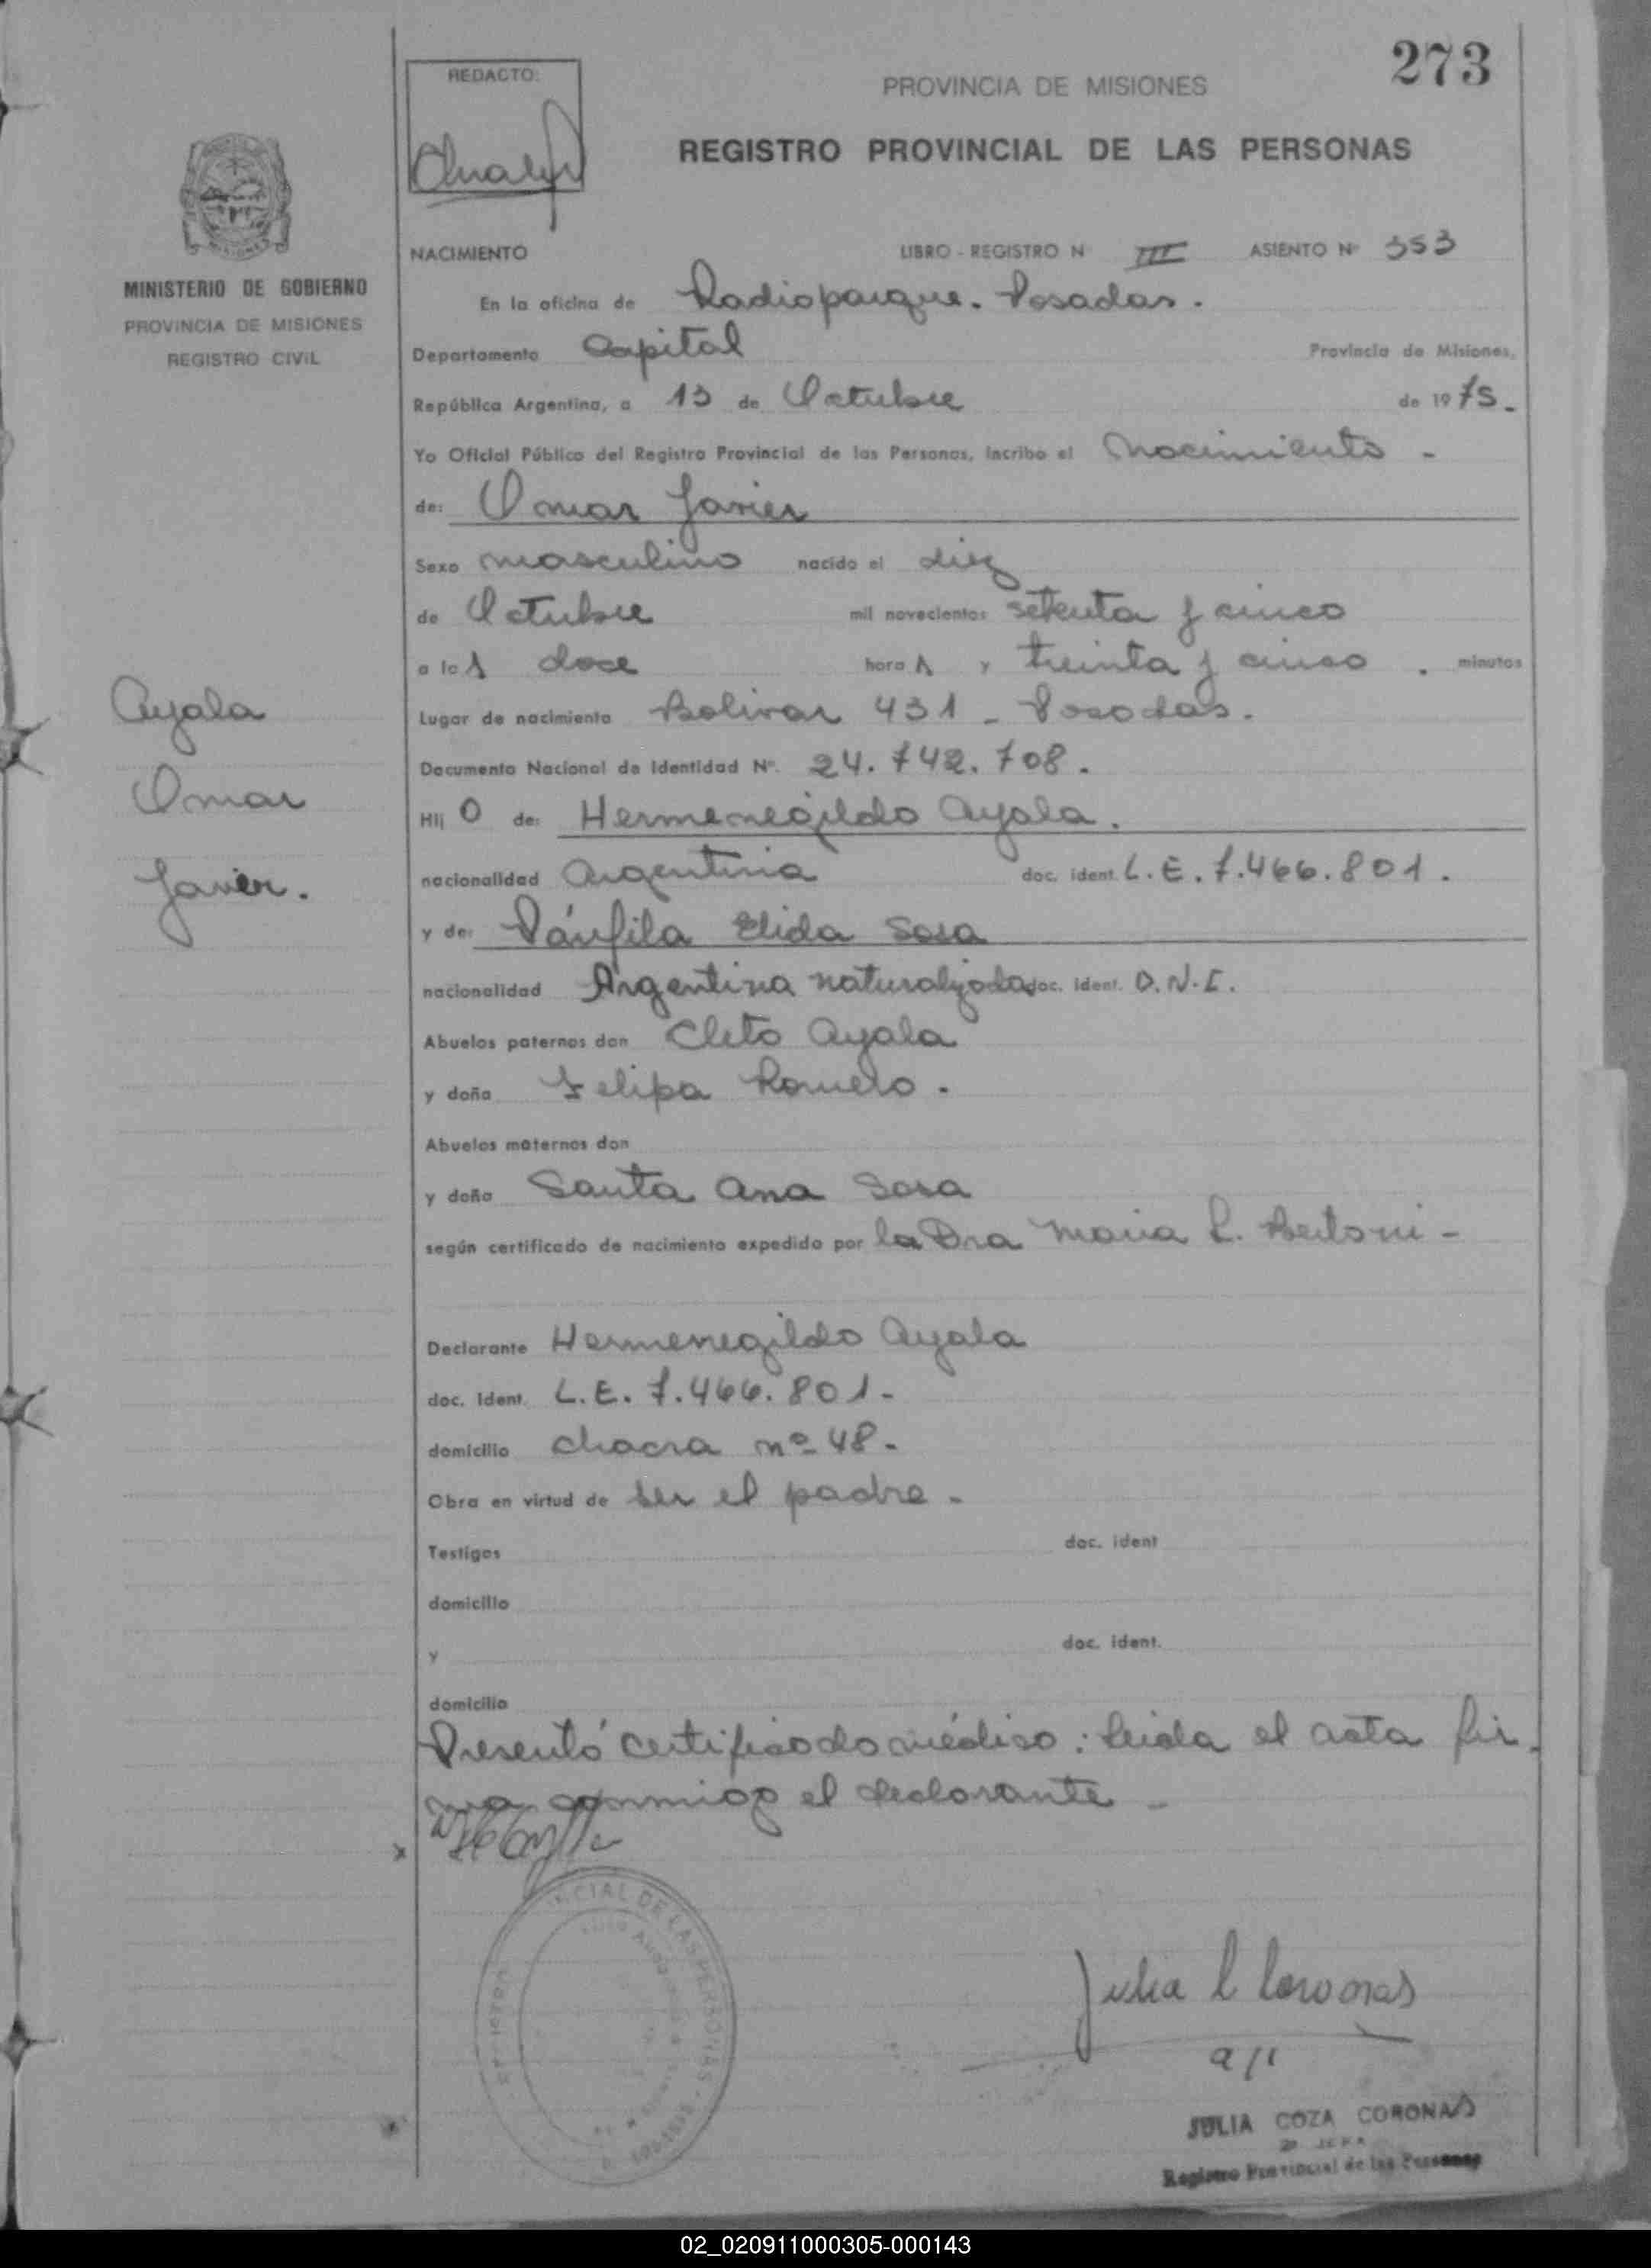 273
REDACTO:
PROVINCIA DE MISIONES
REGISTRO PROVINCIAL DE LAS PERSONAS
MINISTERIO DE GOBIERNO
PROVINCIA DE MISIONES
REGISTRO CIVIL
NACIMIENTO LIBRO - REGISTRO N III ASIENTO Nº 353
En la oficina de Radioparque. Posadas.
Departamento Capital Provincia de Misiones,
República Argentina, a 13 de Octubre de 1975.
Yo Oficial Público del Registro Provincial de las Personas, incribo el Nacimiento -
de: Omar Javier
Sexo masculino nacido el diez
de Octubre mil novecientos setenta y cinco
a las doce horas y treinta y cinco . minutos
Lugar de nacimiento Bolivar 431 - Posadas.
Documento Nacional de Identidad Nº. 24.742.708.
Hij o de: Hermenegildo Ayala.
nacionalidad Argentina doc. ident. L.E. 7.466.801.
y de: Pánfila Elida Sosa
nacionalidad Argentina naturalizada doc. ident. D.N.I.
Abuelos paternos don Cleto Ayala
y doña Felipa Romero.
Abuelos maternos don
y doña Santa Ana Sosa
según certificado de nacimiento expedido por la Dra Maria L. Bertoni -
Declarante Hermenegildo Ayala
doc. ident. L.E. 7.466.801-
domicilio chacra nº 48.
Obra en virtud de ser el padre -
Testigos doc. ident
domicilio
y doc. ident.
domicilio
Presentó certificado médico: leida el acta fir-
ma conmigo el declarante -
Ayala
Omar
Javier.
CIAL DE LAS PERSONAS
Julia C Coronas
a/c
JULIA COZA CORONAS
Registro Provincial de las Personas
02_020911000305-000143